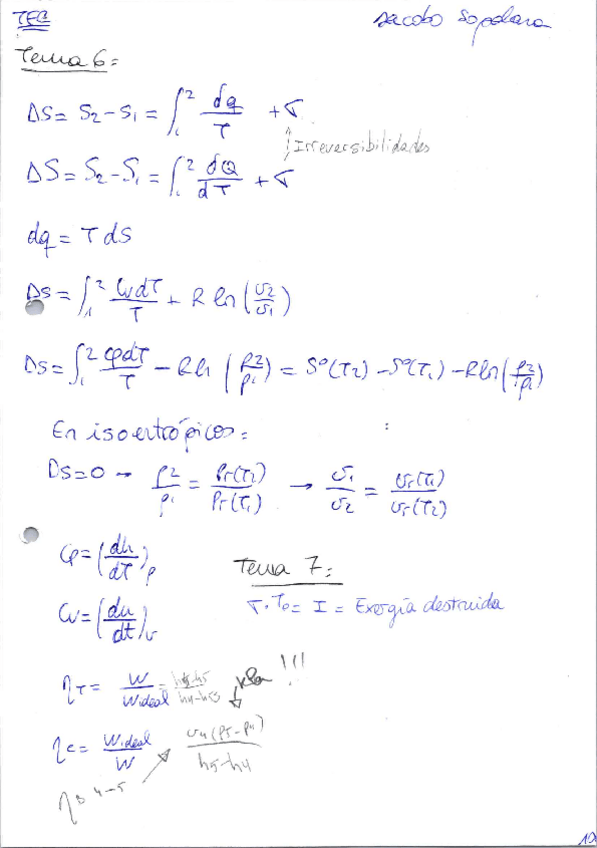 TEC
Jacobo Sopelana
Tema 6:
Δs = s2 - s1 = ∫₁² dq/T + σ
Irreversibilidades
ΔS = S2 - S1 = ∫₁² dQ/dT + σ
dq = T ds
Δs = ∫₁² Cv dT/T + R ln(v2/v1)
Δs = ∫₁² Cp dT/T - R ln(p2/p1) = S°(T2) - S°(T1) - R ln(p2/p1)
En isoentrópicos:
Δs=0 → p2/p1 = Pr(T2)/Pr(T1) → v1/v2 = vr(T1)/vr(T2)
Cp = (dh/dT)p
Tema 7:
Cv = (du/dt)v
σ·T0 = I = Exergía destruida
ηT = W/Wideal =
!!!
ηc = Wideal/W
v4(p5-p4)/h5-h4
ηB 4-5
10